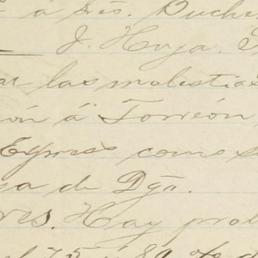 á sres. Buche
J. Hoya.
las molestias
á Torreón
Express como s
sa de Dgo.
res. Hay prob
75 u 80 % d